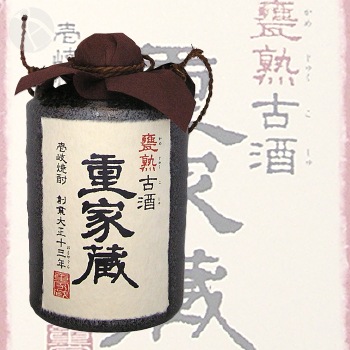 甕熟古酒
かめ じゅく こ しゅ
重家蔵
壱岐焼酎 創業大正十三年
重家蔵
甕熟古酒
重家蔵
壱岐焼